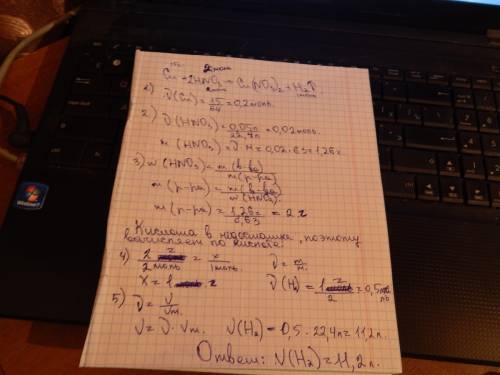 15г. 2моль
Cu + 2HNO₃ → Cu(NO₃)₂ + H₂↑
2моль 1моль
1) ν(Cu) = 15/64 = 0,2 моль.
2) ν(HNO₃) = 0,05л/22,4л = 0,02 моль.
m(HNO₃) = ν·M = 0,02·63 = 1,26г
3) w(HNO₃) = m(в-ва)/m(р-ра)
m(р-ра) = m(в-ва)/w(HNO₃)
m(р-ра) = 1,26г/0,63 = 2 г
Кислота в недостатке, поэтому
вычисляем по кислоте.
4) 2 г/2 моль = x/1 моль ν = m/M.
x = 1 г ν(H₂) = 1 г/2 = 0,5 моль
5) ν = V/Vm.
V = ν·Vm. V(H₂) = 0,5·22,4л = 11,2л.
Ответ: V(H₂) = 11,2 л.